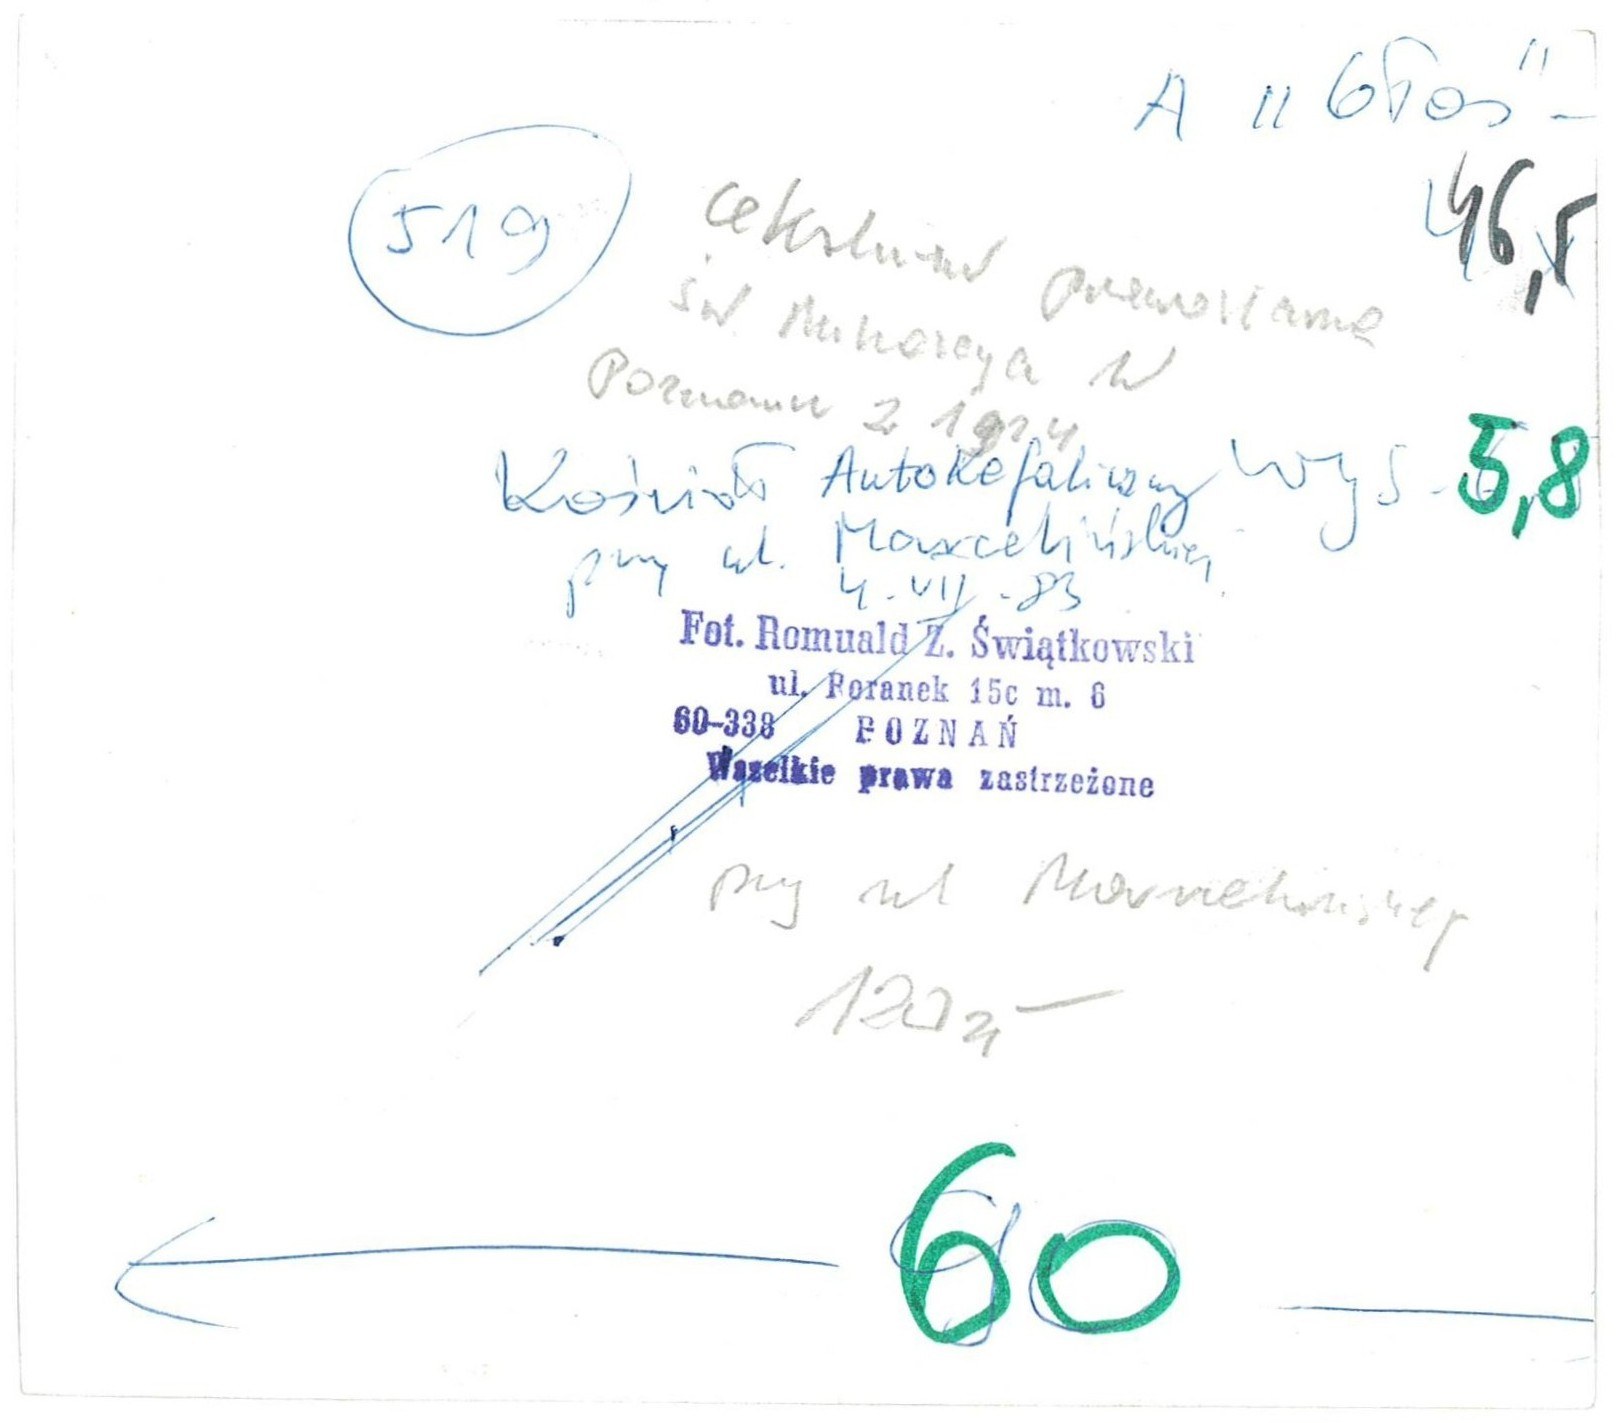 A "Głos" –
519
46,5
cerkiew prawosławna
św. Mikołaja w
Poznaniu z 1924
Kościół Autokefaliczny
wys. 5,8
przy ul. Marcelińskiej
4.VII.83
Fot. Romuald Z. Świątkowski
ul. Poranek 15c m. 6
60-338 POZNAŃ
Wszelkie prawa zastrzeżone
przy ul Marcelińskiej
120zł –
60